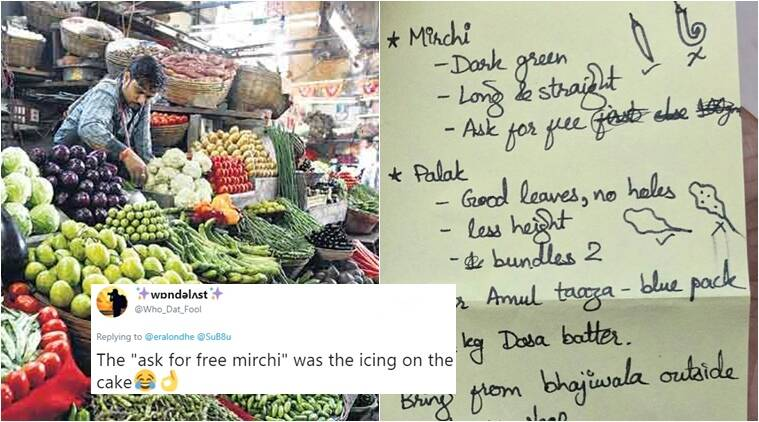 ✨wɒndəlʌst✨
@Who_Dat_Fool
Replying to @eralondhe @SuB8u
The "ask for free mirchi" was the icing on the
cake😂👌
* Mirchi
- Dark green
- Long & straight
- Ask for free
* Palak
- Good leaves, no holes
- less height
- bundles 2
Amul taaza - blue pack
kg Dosa batter.
Bring from bhajiwala outside